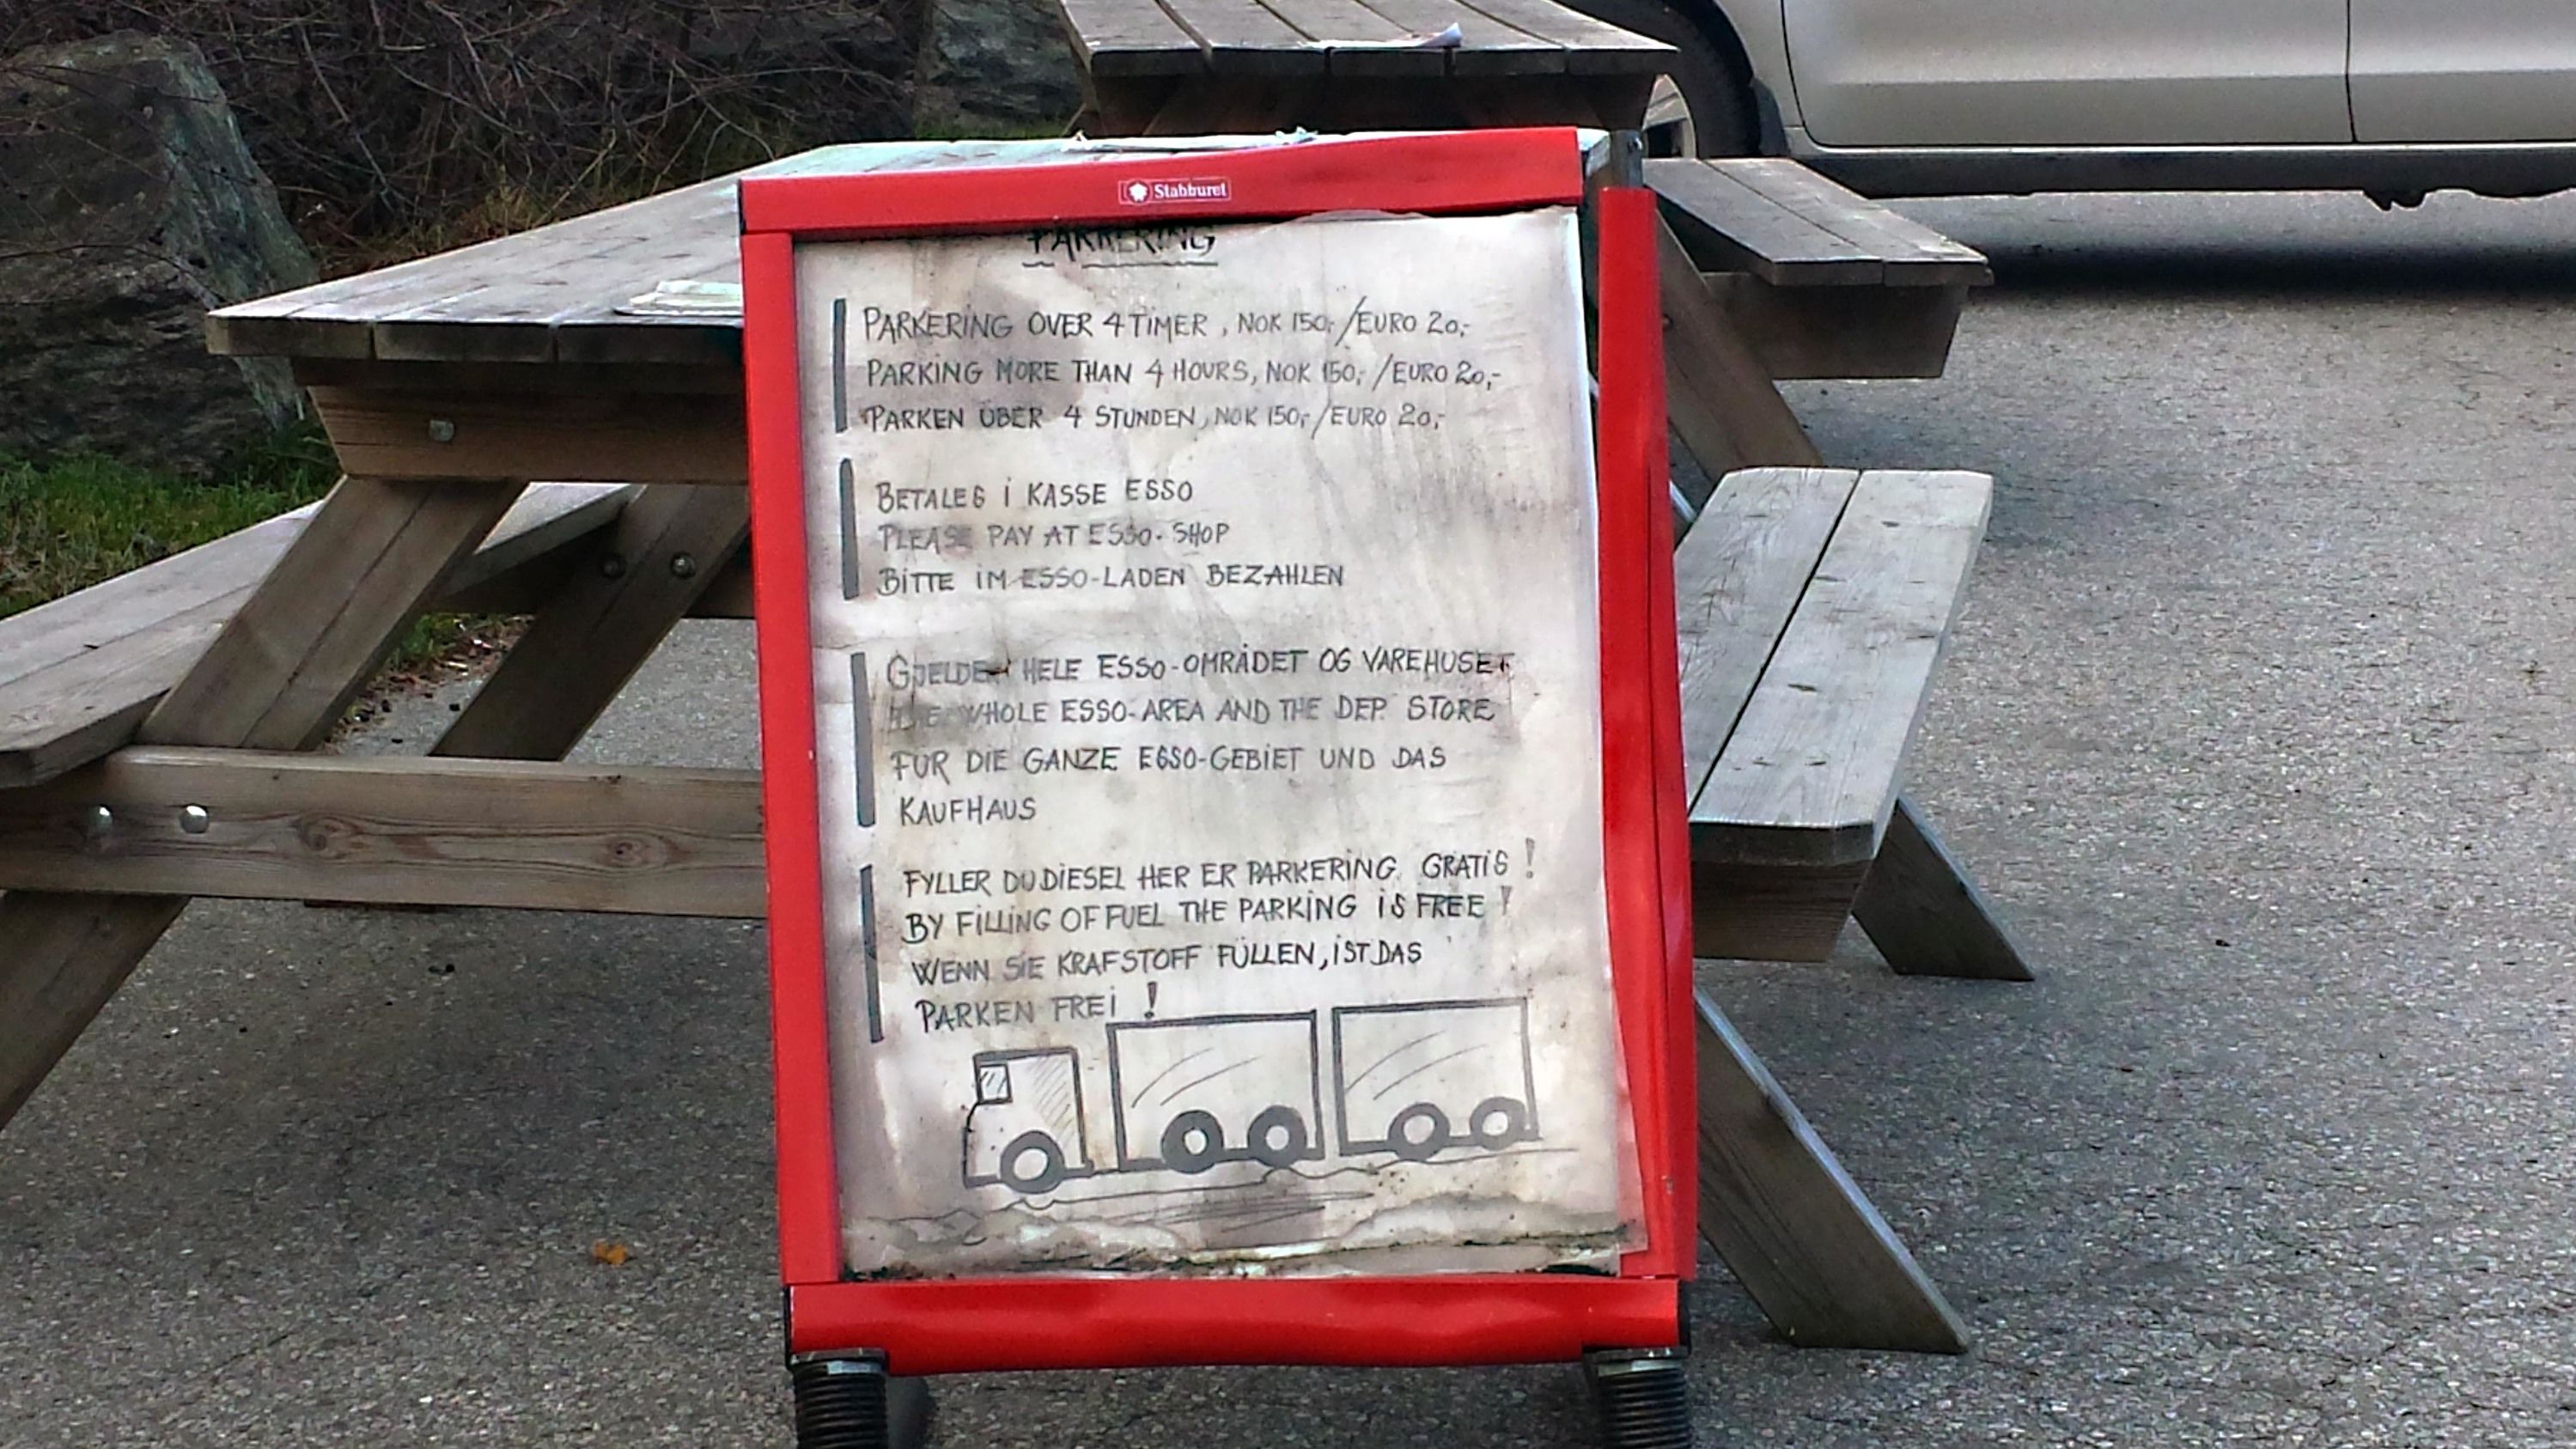 Stabburet
PARKERING
PARKERING OVER 4 TIMER, NOK 150,-/EURO 20,-
PARKING MORE THAN 4 HOURS, NOK 150,-/EURO 20,-
PARKEN ÜBER 4 STUNDEN, NOK 150,-/EURO 20,-
BETALES I KASSE ESSO
PLEASE PAY AT ESSO-SHOP
BITTE IM ESSO-LADEN BEZAHLEN
GJELDER HELE ESSO-OMRÅDET OG VAREHUSET
THE WHOLE ESSO-AREA AND THE DEP. STORE
FÜR DIE GANZE ESSO-GEBIET UND DAS
KAUFHAUS
FYLLER DU DIESEL HER ER PARKERING GRATIS!
BY FILLING OF FUEL THE PARKING IS FREE!
WENN SIE KRAFSTOFF FÜLLEN, IST DAS
PARKEN FREI!